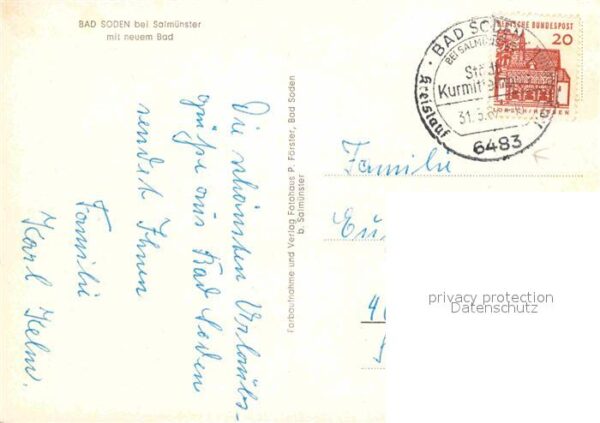 BAD SODEN bei Salmünster
mit neuem Bad
Die schönsten Urlaubs-
grüße aus Bad Soden
sendet Ihnen
Familie
Karl Helm.
Farbaufnahme und Verlag Fotohaus P. Förster, Bad Soden
b. Salmünster
BAD SODEN
BEI SALMÜNSTER
Kreislauf
31.5.6
6483
DEUTSCHE BUNDESPOST
20
Familie
privacy protection
Datenschutz